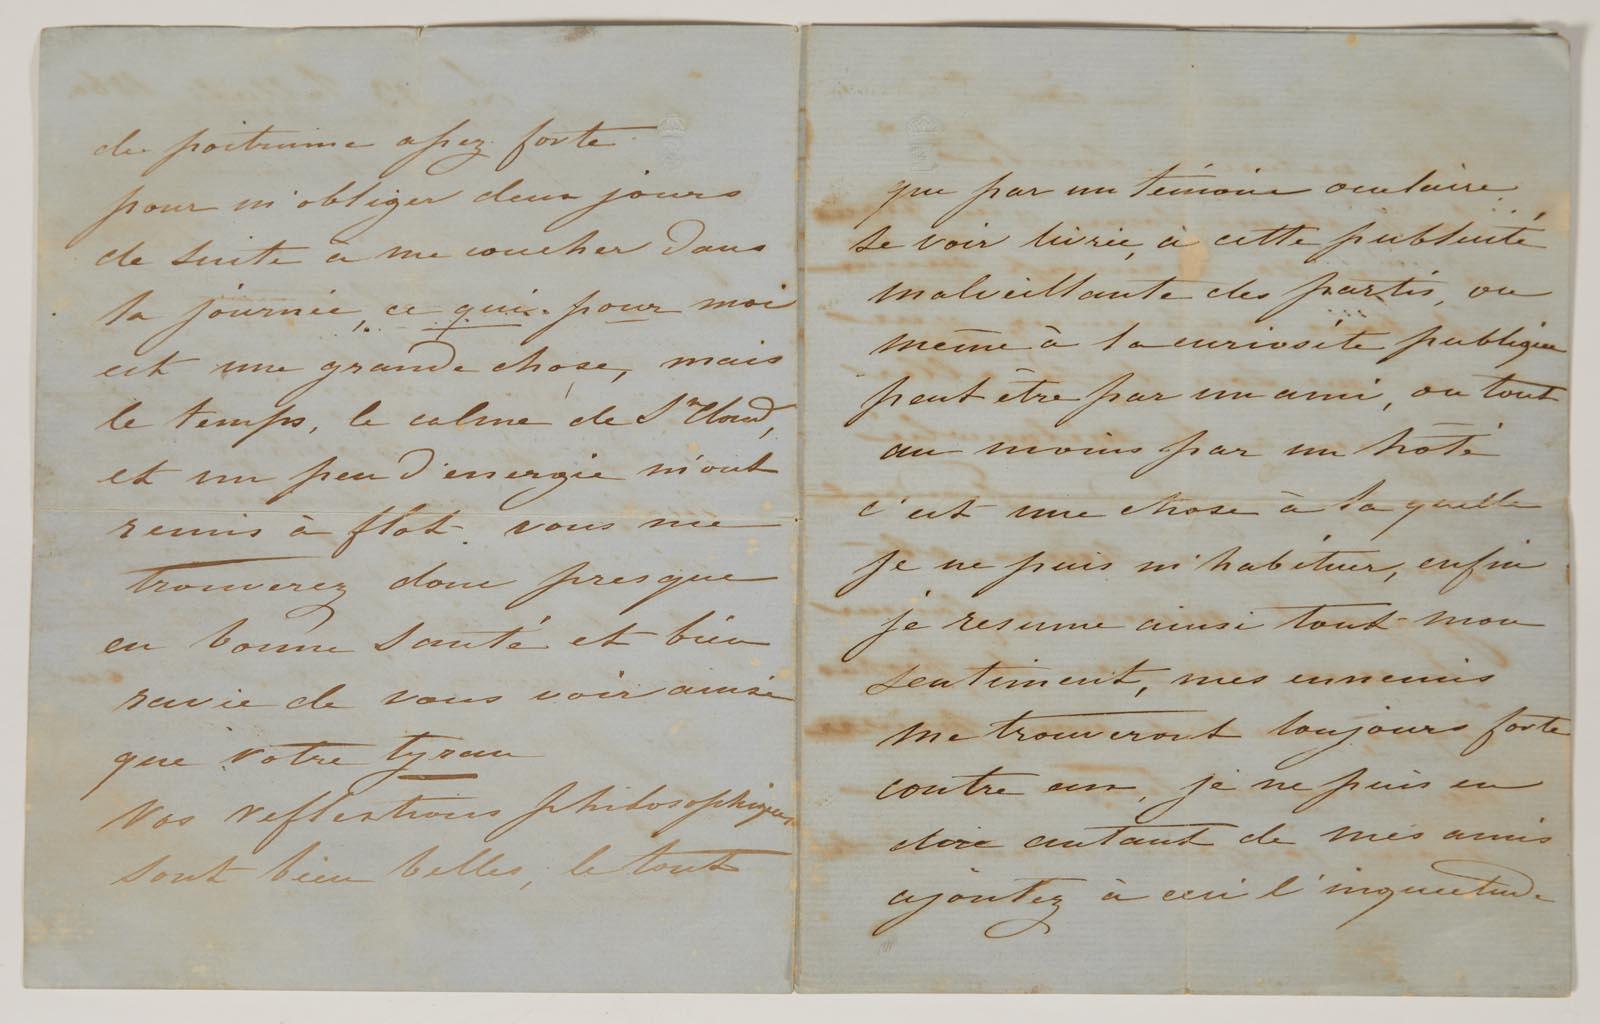 de poitrinne assez forte
pour m'obliger deux jours
de suite à me coucher dans
la journée, ce qui pour moi
est une grande chose, mais
le temps, le calme de St Cloud,
et un peu d'energie m'ont
remis à flot. vous me
trouverez donc presque
en bonne santé et bien
ravie de vous voir ainsi
que votre tyran
Vos reflextions philosophiques
sont bien belles, le tout
que par un témoin oculaire,
se voir livrée, à cette publicité
malveillante des partis, ou
même à la curiosité publique
peut être par un ami, ou tout
au moins par un hôte
c'est une chose à la quelle
je ne puis m'habituer, enfin
je resume ainsi tout mon
sentiment, mes ennemis
me trouveront toujours forte
contre eux, je ne puis en
dire autant de mes amis
ajoutez à ceci l'inquietude